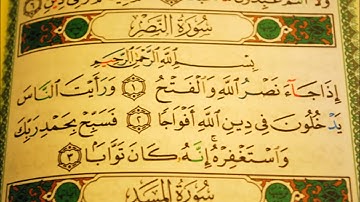 سُورَةُ النَّصْرِ
بِسْمِ اللَّهِ الرَّحْمَٰنِ الرَّحِيمِ
إِذَا جَآءَ نَصْرُ اللَّهِ وَالْفَتْحُ ١ وَرَأَيْتَ النَّاسَ
يَدْخُلُونَ فِي دِينِ اللَّهِ أَفْوَاجًا ٢ فَسَبِّحْ بِحَمْدِ رَبِّكَ
وَاسْتَغْفِرْهُ إِنَّهُ كَانَ تَوَّابًا ٣
سُورَةُ الْمَسَدِ